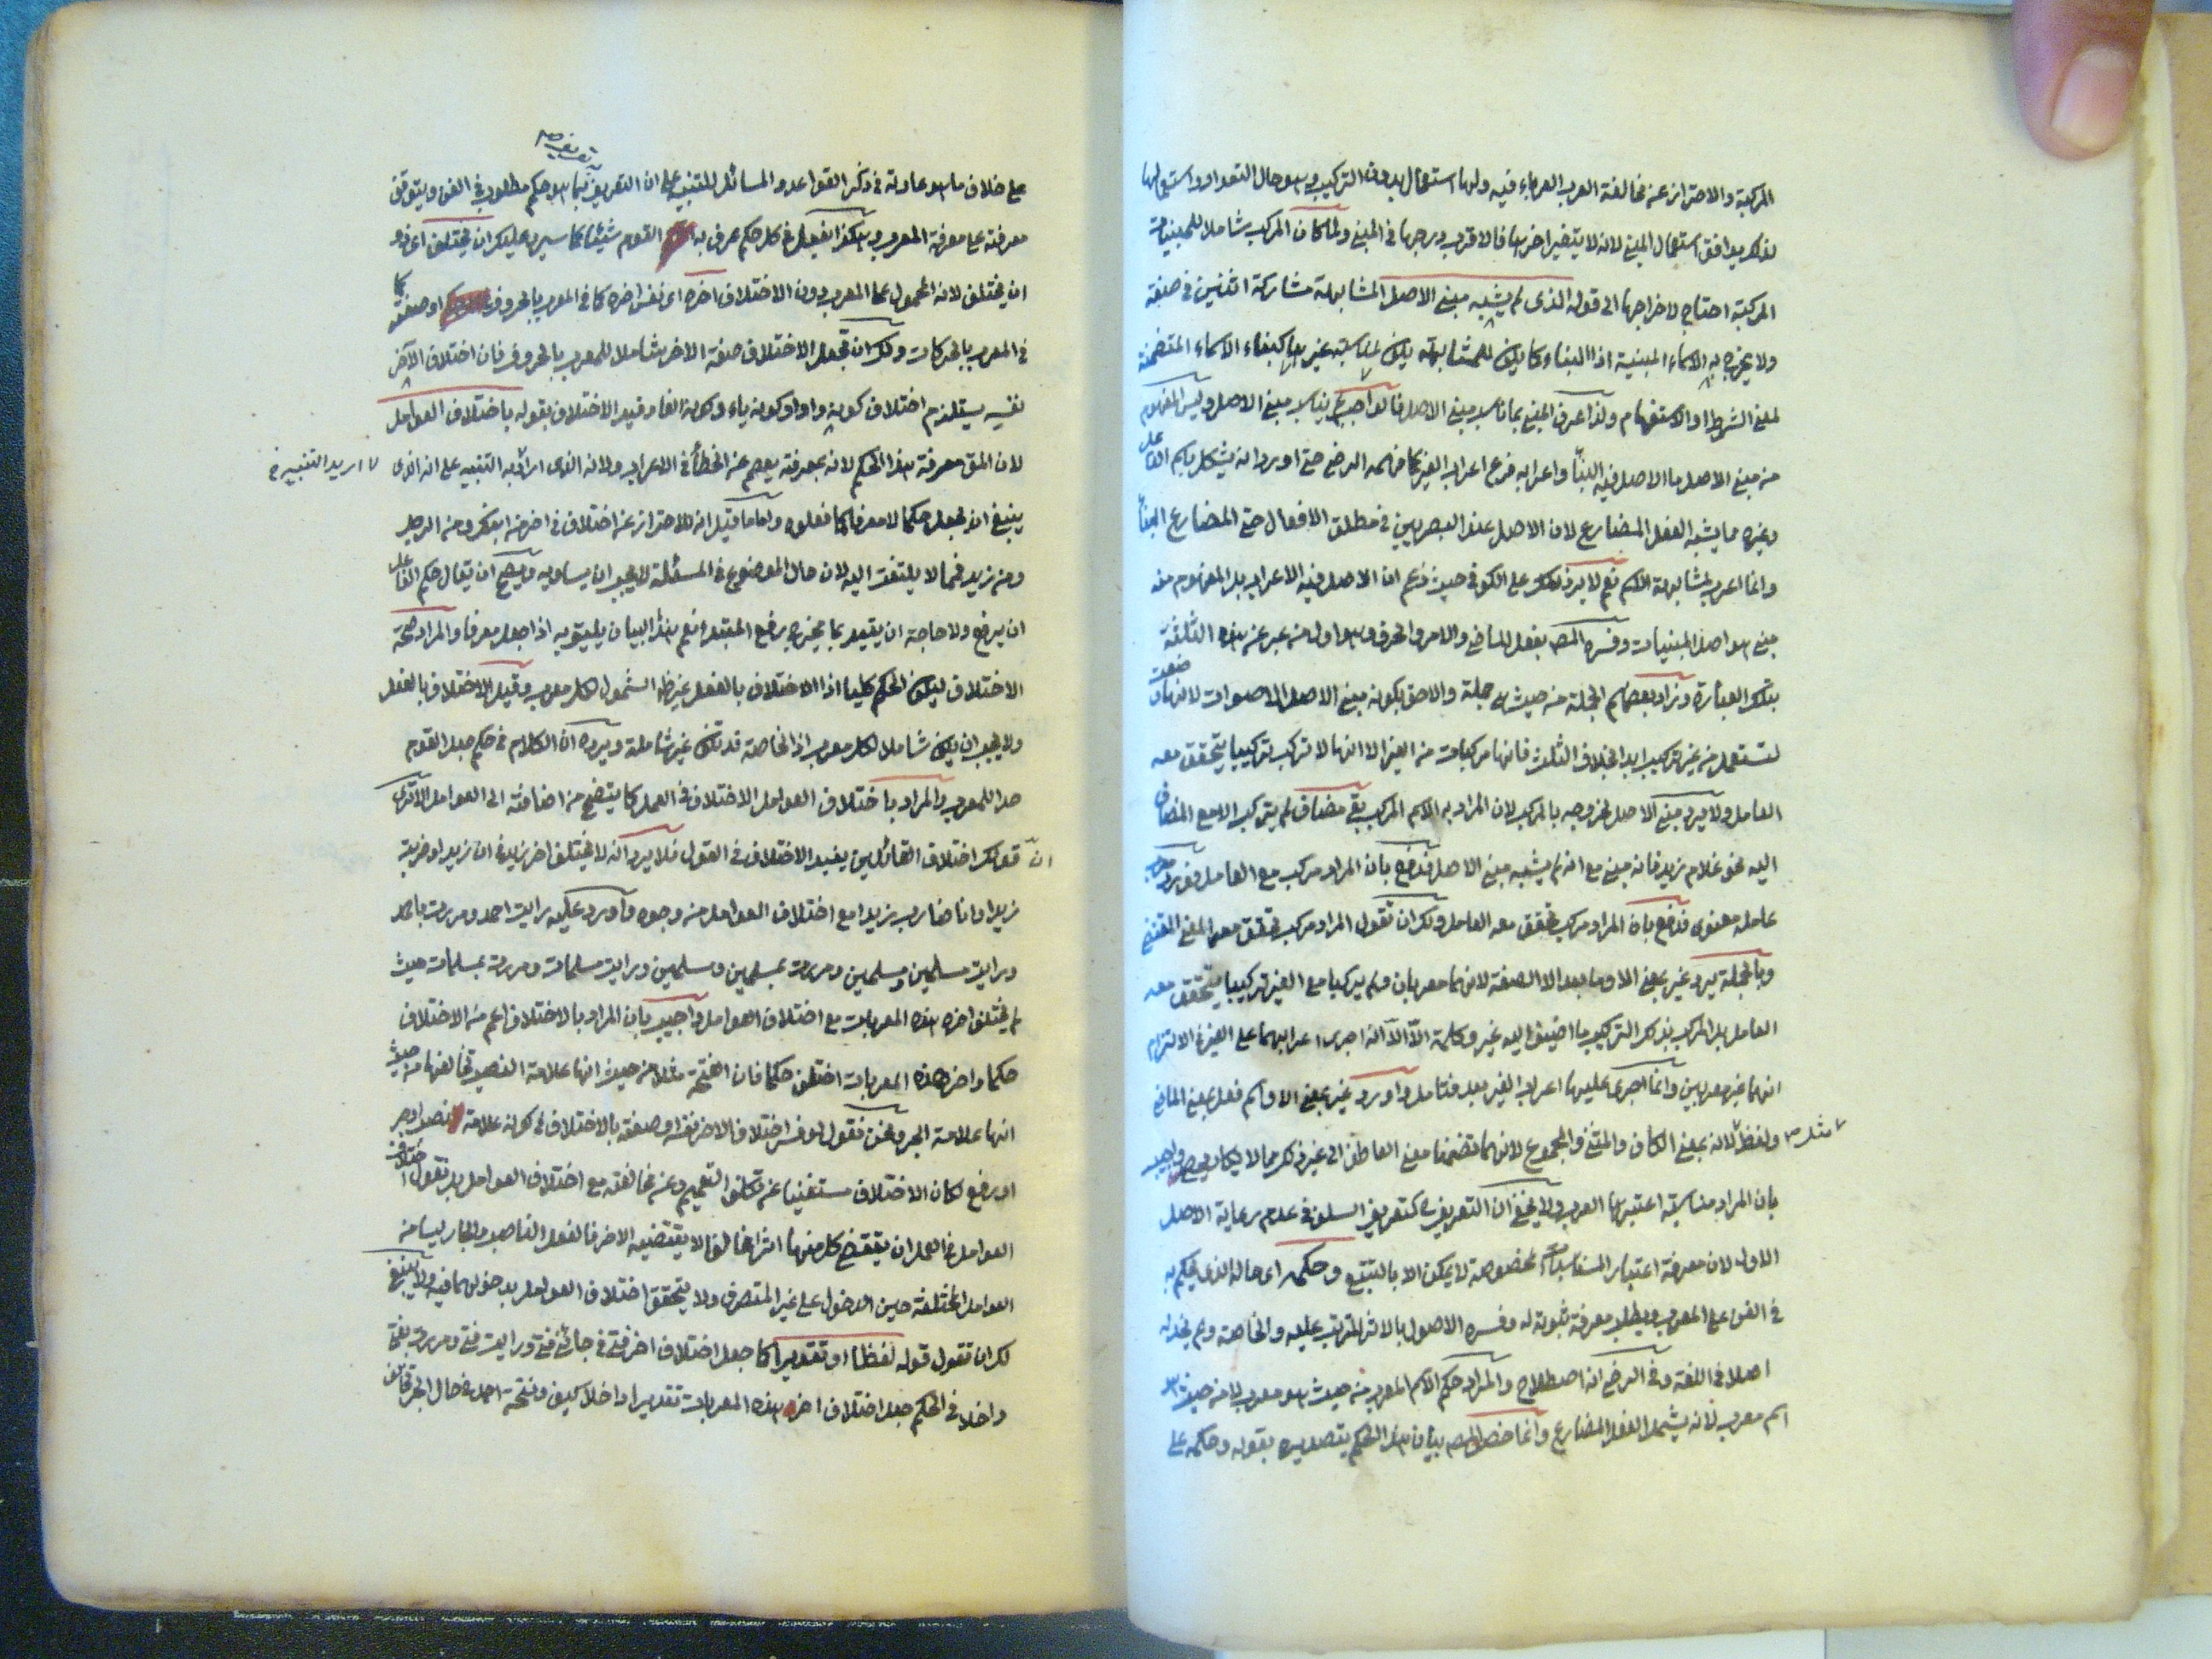 المركبة والاحتراز عن مخالفة العرب العرباء فيه ولها استعمال بدون التركيب وهو حال التعداد واستعمالها
لذلك يوافق استعمال المبنى لانه لا يتغير اخرها فالاقرب درجها في المبنى ولما كان المركب شاملا للمبنيات
المركبة احتاج لاخراجها الى قوله الذى لم يشبه مبنى الاصل المشابهة مشاركة اثنين في صفة
ولا يخرج به الاسماء المبنية اذ البناء كما يكون للمشابهة يكون لمناسبة غيرها كبناء الاسماء المتضمنة
لمعنى الشرط او الاستفهام ولذا عرف المبنى بما ناسب مبنى الاصل فالواجب لم يناسب مبنى الاصل وليس المفهوم
من مبنى الاصل ما الاصل فيه البناء واعرابه فرع اعراب الغير كما فهمه الرضى حتى اورد انه يشكل باسم الفاعل
وغيره مما يشبه الفعل المضارع لان الاصل عند البصريين في مطلق الافعال حتى المضارع البناء
وانما اعرب لمشابهة الاسم نعم لا يرد ذلك على الكوفى حيث زعم ان الاصل فيه الاعراب بل المفهوم من
مبنى هو اصل المبنيات وفسره المص بفعل الماضى والامر والحرف وهو اول من عبر عن هذه الثلثة
بتلك العبارة وزاد بعضهم الجملة من حيث هى جملة والاحق بكونه مبنى الاصل الاصوات لانها
لتستعمل من غير تركيب ابدا بخلاف الثلث فانها مركبات من الغير الا انها لا تركب تركيبا يتحقق معه
العامل ولا يرد مبنى الاصل لخروجه بالمركب لان المراد به الاسم المركب بقى مضاف لم يتركب الا مع المضاف
اليه نحو غلام زيد فانه مبنى مع انه لم يشبه مبنى الاصل فدفع بان المراد مركب مع العامل فورد
عامله معنوى فدفع بان المراد مركب تحقق معه العامل ولك ان تقول المراد مركب تحقق معه المعنى المقتضى
وبالجملة يرد غير بمعنى الا وما بعد الا الصفة لانهما معربان ولم يركبا مع الغير تركيبا يتحقق معه
العامل بل المركب بذلك التركيب ما اضيف اليه غير وكلمة الا الا انه اجرى اعرابهما على الغير الا لتزم
انهما غير معربين وانما اجرى عليها اعراب الغير بعد فتامل واورد غير بمعنى الا واسم فعل بمعنى الماضى
مثل ولفظ لانه بمعنى الكاف والمثنى والمجموع لانهما تضمنا معنى العاطف الى غير ذلك مما لا يكاد يحصى واجيب
بان المراد مناسبة اعتبرها العرب ولا يخفى ان التعريف كتعريف السلف في عدم رعاية الاصل
الاول لان معرفة اعتبار المناسبات مخصوصة لا يمكن الا بالتتبع وحكمه اى حاله الذى يحكم به
في الفن على المعرب ويطلب معرفة ثبوته له وفسره الاصول بالاثر المترتب عليه والخاصة ولم نجد له
اصلا في اللغة وفي الرضى انه اصطلاح والمراد حكم الاسم المعرب من حيث هو معرب لا من حيث هو
اسم معرب لانه يشمل الفعل المضارع وانما خص المص بيان هذا الحكم بتصديره بقوله وحكمه على
على خلاف ما هو عادته في ذكر القواعد والمسائل للتنبيه على ان التعريف بما هو حكم مطلوب في الفن ويتوقف
معرفته على معرفة المعرب وهكذا يفعل في كل حكم عرف به القوم شيئا كما سيرد عليك ان يختلف اى ذو
ان يختلف لانه المحمول على المعرب دون الاختلاف اخره اى نفس اخره كما في المعرب بالحروف او صفته كما
في المعرب بالحركات ولك ان تجعل الاختلاف صفة الاخر شاملا للمعرب بالحروف فان اختلاف الاخر
نفسه يستلزم اختلاف كونه واوا وكونه ياء وكونه الفا وقيد الاختلاف بقوله باختلاف العوامل
لان المق معرفة هذا الحكم لانه بمعرفته يعصم عن الخطأ في الاعراب ولانه الذى اراد به التنبيه على انه الذى
اريد التنبيه
ينبغى ان يجعل حكما لا معرفا كما فعلوه واما ما قيل انه للاحتراز عن اختلاف في اخر من ابنك ومن الرجل
ومن زيد فمما لا يلتفت اليه لان حال الموضوع في المسئلة لا يجب ان يساويه ويصح ان يقال حكم الفاعل
ان يرفع ولا حاجة ان يقيد بما يخرج رفع المبتدء نعم هذا البيان يليق به اذا جعل معرفا والمراد صحة
الاختلاف ليكون الحكم كليا اذ الاختلاف بالفعل غير ظ الشمول لكل معرب وقيل الاختلاف بالفعل
ولا يجب ان يكون شاملا لكل معرب اذ الخاصة قد تكون غير شاملة ويرده ان الكلام في حكم جعله القوم
حدا للمعرب والمراد باختلاف العوامل الاختلاف في العمل كما يتضح من اضافته الى العوامل الا ترى
ان قولك اختلاف القائلين يفيد الاختلاف في القول فلا يرد انه لا يختلف اخر زيد في ان زيدا وضربت
زيدا وانا ضارب زيدا مع اختلاف العوامل من وجوه واورد عليه رايت احمد ومررت باحمد
ورايت مسلمين ومسلمين ومررت بمسلمين ومسلمين ورايت مسلمات ومررت بمسلمات حيث
لم يختلف اخر هذه المعربات مع اختلاف العوامل واجيب بان المراد بالاختلاف اعم من الاختلاف
حكما واخر هذه المعربات اختلف حكما فان الفتحة مثلا من حيث انها علامة النصب تخالفها من حيث
انها علامة الجر ونحن نقول لو فسر اختلاف الاخر نفسه وصفته بالاختلاف في كونه علامة نصب او جر
او رفع لكان الاختلاف مستغنيا عن تكلف التعميم وعن مخالفته مع اختلاف العوامل بل نقول اختلاف
العوامل في العمل ان يقتضى كل منها اثرا مخالفا لا يقتضيه الاخر فالفعل الناصب والجار ليسا من
العوامل المختلفة حين الدخول على غير المتصرف ولا يتحقق اختلاف العوامل بدخولهما فيه ولا ينبغى
لك ان تقول قوله لفظا او تقديرا كما جعل اختلاف اخر فتى في جاءنى فتى ورايت فتى ومررت بفتى
داخلا في الحكم جعل اختلاف اخر هذه المعربات تقديرا داخلا كيف وفتحة احمد في حال الجر